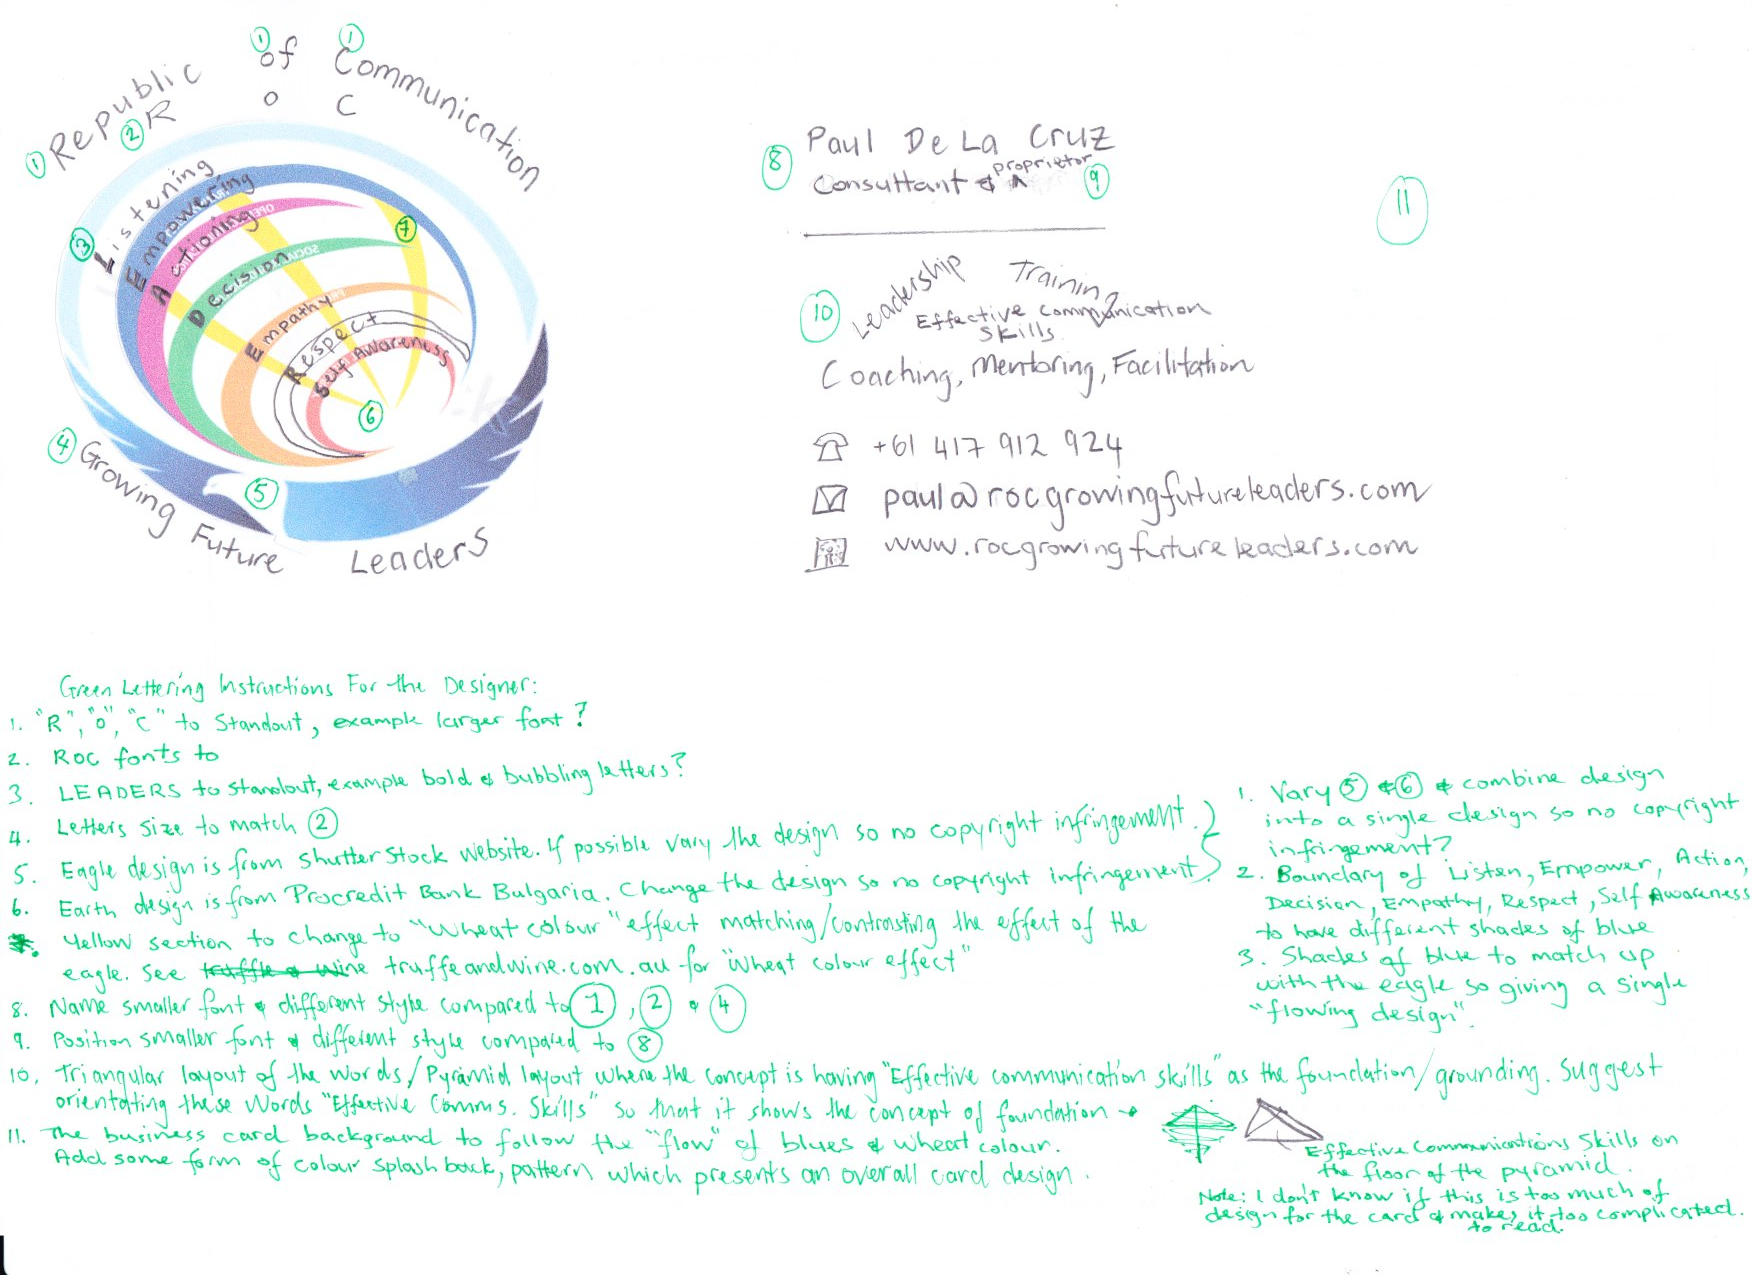 Republic of Communication
R o C
Listening,
Empowering
Actioning
Decision
Empathy
Respect
Self Awareness
Growing Future Leaders
1
1
1
2
3
4
5
6
7
Paul De La Cruz
8
Consultant & proprietor
9
11
Leadership Training
10
Effective communication
Skills
Coaching, Mentoring, Facilitation
+61 417 912 924
paul@rocgrowingfutureleaders.com
www.rocgrowingfutureleaders.com
Green Lettering Instructions For the Designer:
1. "R", "o", "C" to Standout, example larger font?
2. ROC fonts to
3. LEADERS to standout, example bold & bubbling letters?
4. Letters size to match 2
5. Eagle design is from Shutter Stock website. If possible vary the design so no copyright infringement.
6. Earth design is from Procredit Bank Bulgaria. Change the design so no copyright infringement.
Yellow section to change to "Wheat colour" effect matching/contrasting the effect of the
eagle. See truffeandwine.com.au for "Wheat colour effect"
8. Name smaller font & different style compared to 1, 2 & 4
9. Position smaller font & different style compared to 8
10. Triangular layout of the words/Pyramid layout where the concept is having "Effective communication skills" as the foundation/grounding. Suggest
orientating these words "Effective Comms. Skills" so that it shows the concept of foundation
11. The business card background to follow the "flow" of blues & wheat colour.
Add some form of colour splash back, pattern which presents an overall card design.
1. Vary 5 & 6 & combine design
into a single design so no copyright
infringement?
2. Boundary of Listen, Empower, Action,
Decision, Empathy, Respect, Self Awareness
to have different shades of blue
3. Shades of blue to match up
with the eagle so giving a single
"flowing design".
Effective Communications Skills on
the floor of the pyramid.
Note: I don't know if this is too much of
design for the card & makes it too complicated.
to read.